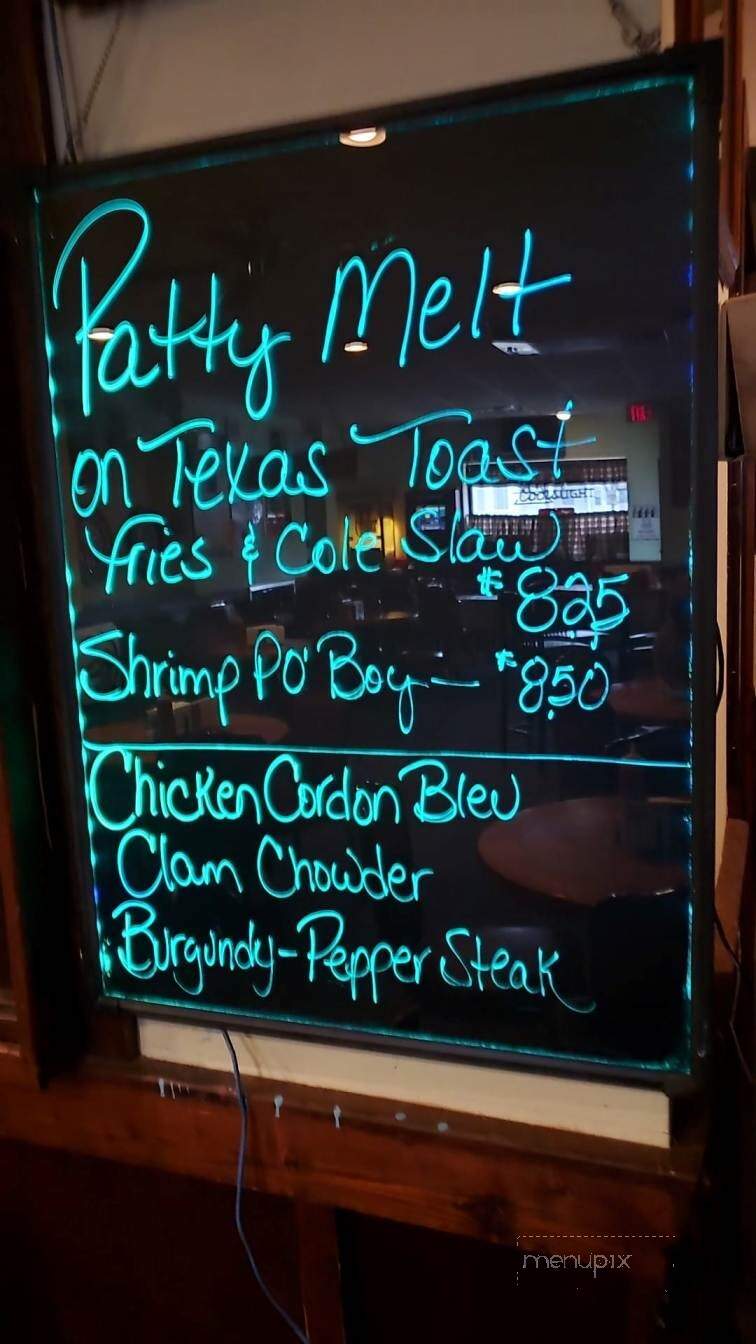 Patty Melt
on Texas Toast
Fries & Cole Slaw
$8.25
Shrimp Po' Boy — $8.50
Chicken Cordon Bleu
Clam Chowder
Burgundy-Pepper Steak
menupix